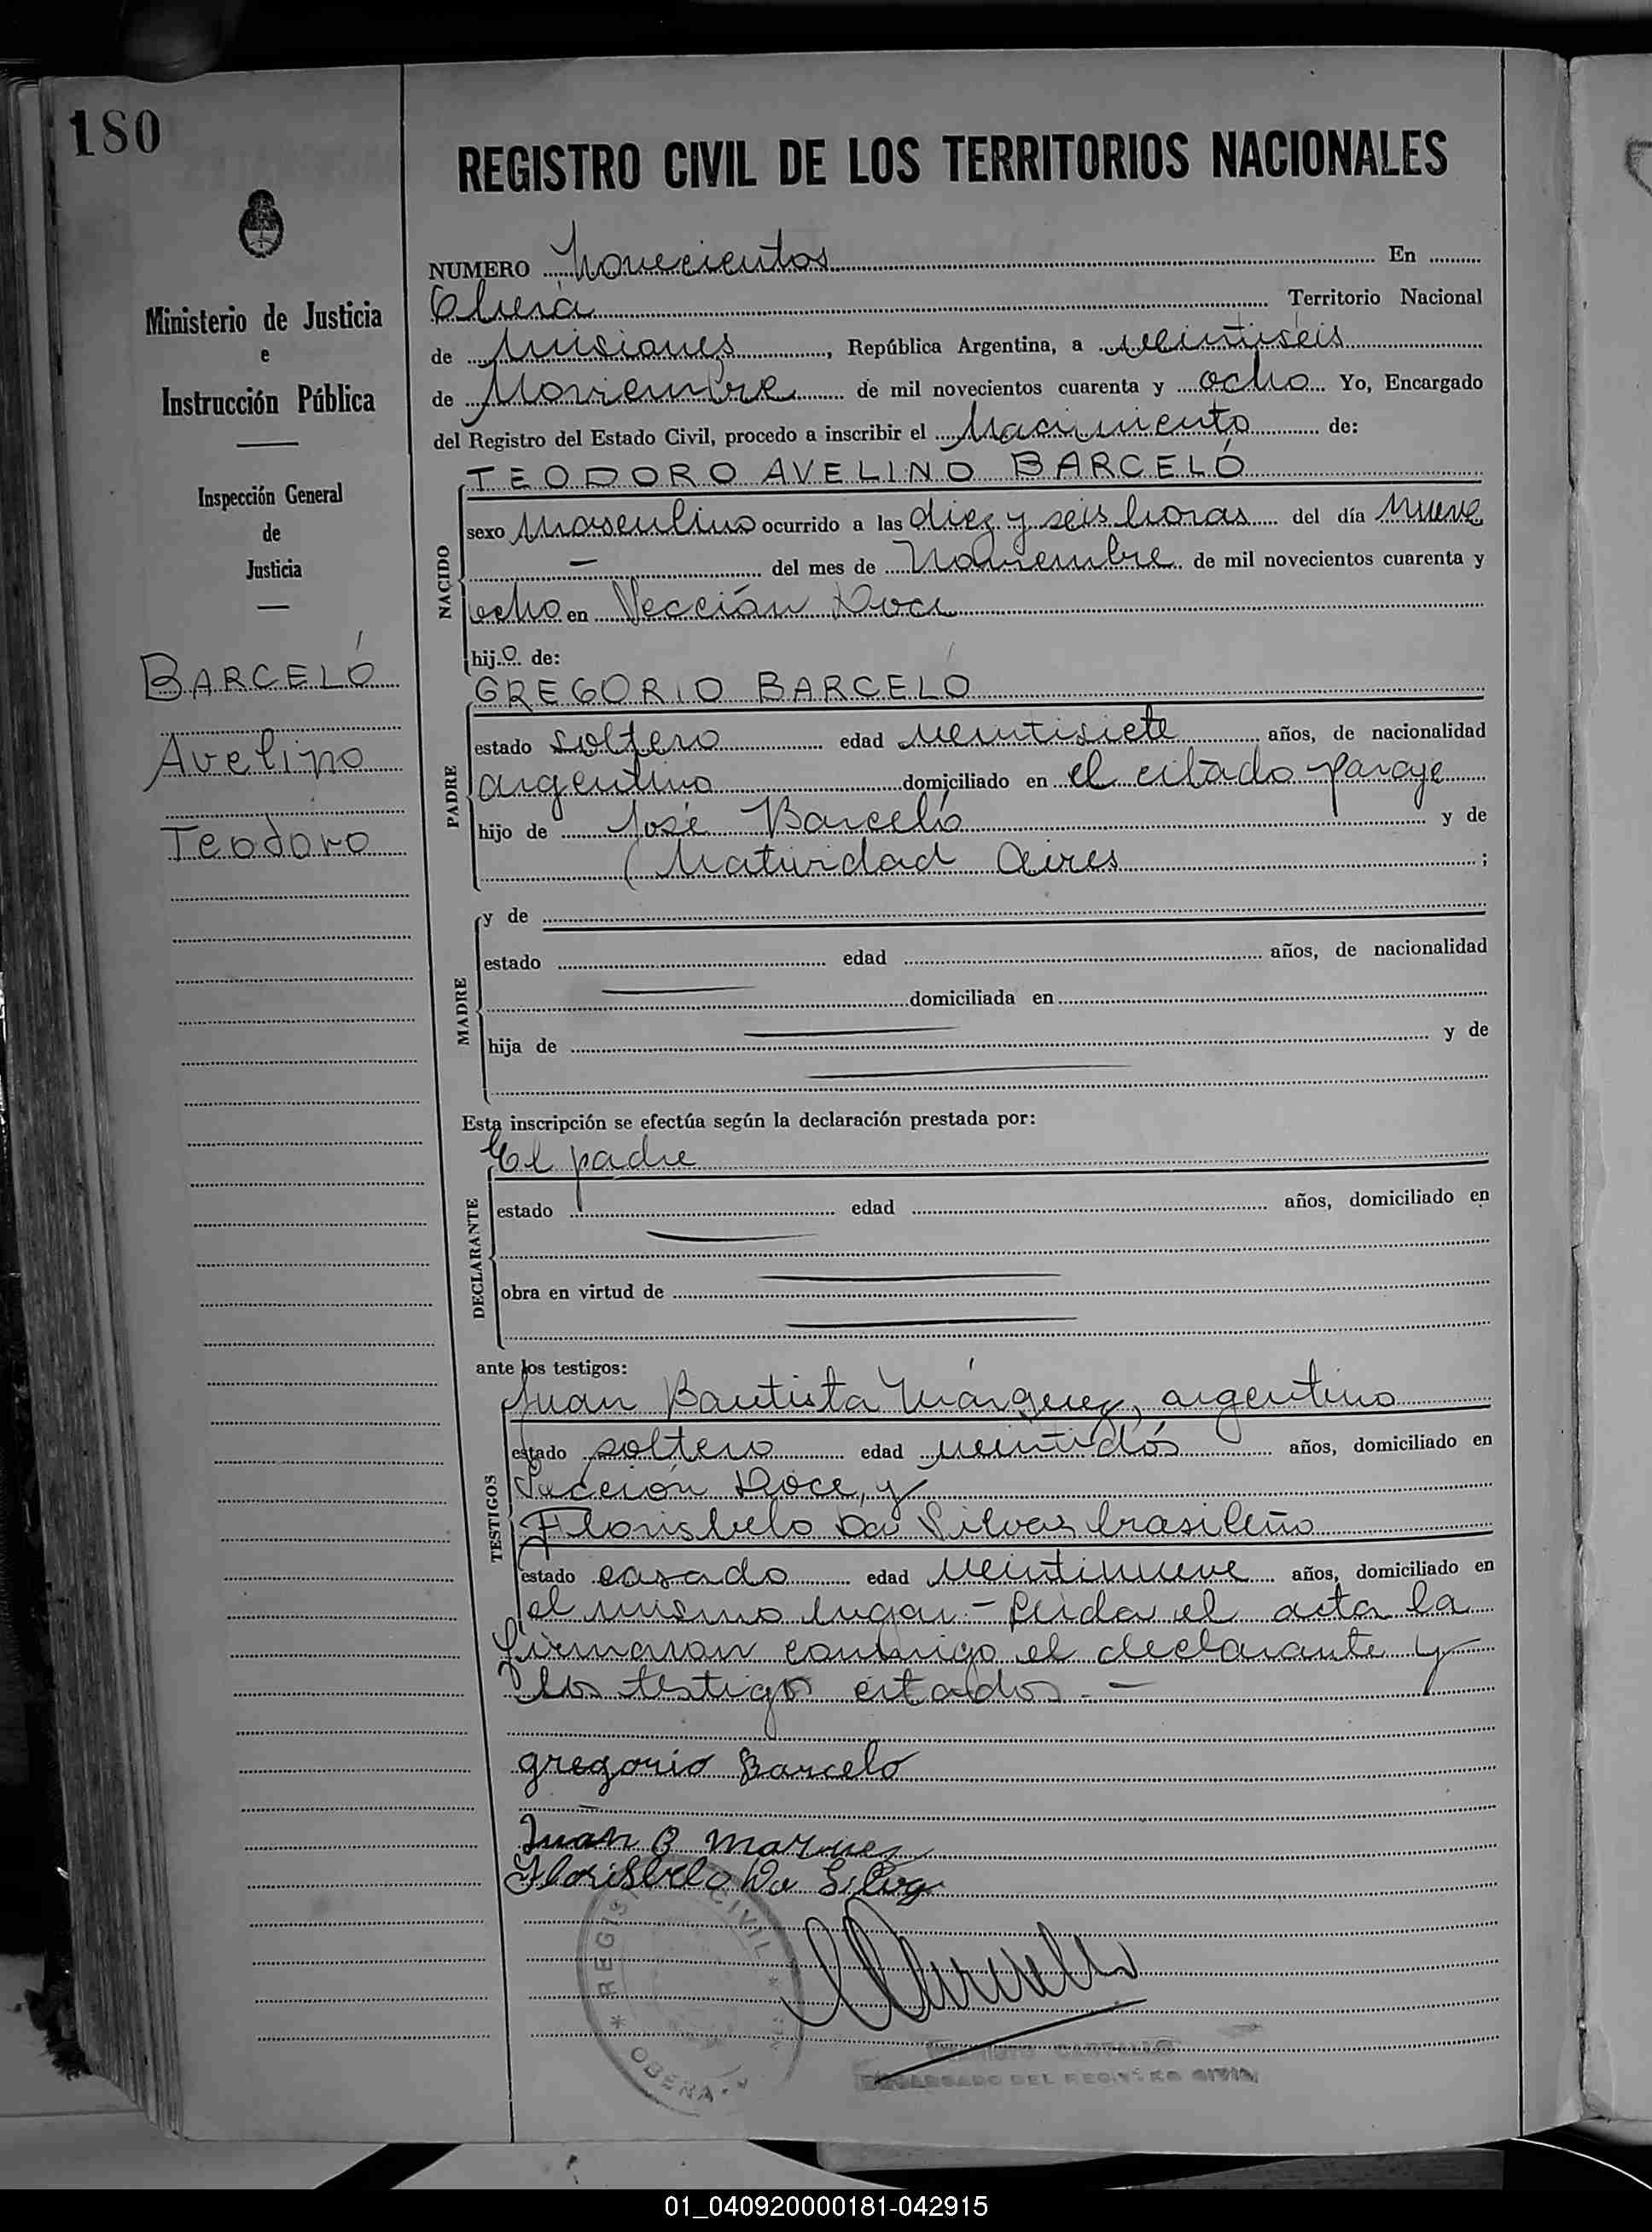 180
REGISTRO CIVIL DE LOS TERRITORIOS NACIONALES
Ministerio de Justicia
e
Instrucción Pública
Inspección General
de
Justicia
BARCELÓ
Avelino
Teodoro
NUMERO Novecientos En
Oberá Territorio Nacional
de Misiones, República Argentina, a veintiseis
de Noviembre de mil novecientos cuarenta y ocho Yo, Encargado
del Registro del Estado Civil, procedo a inscribir el Nacimiento de:
NACIDO
TEODORO AVELINO BARCELÓ
sexo Masculino ocurrido a las diez y seis horas del día nueve
— del mes de Noviembre de mil novecientos cuarenta y
ocho en Sección Doce
hijo de:
PADRE
GREGORIO BARCELO
estado soltero edad veintisiete años, de nacionalidad
argentino domiciliado en el citado paraje
hijo de José Barceló y de
Natividad Aires ;
MADRE
y de
estado edad años, de nacionalidad
domiciliada en
hija de y de
Esta inscripción se efectúa según la declaración prestada por:
DECLARANTE
El padre
estado edad años, domiciliado en
obra en virtud de
ante los testigos:
TESTIGOS
Juan Bautista Márquez, argentino
estado soltero edad veintidós años, domiciliado en
Sección Doce, y
Florisbelo Da Silva, brasileño
estado casado edad veintinueve años, domiciliado en
el mismo lugar.- Leida el acta la
firmaron conmigo el declarante y
los testigos citados.-
gregorio Barcelo
Juan B marquez
Florisbelo Da Silva
REGISTRO CIVIL
OBERA
ENCARGADO DEL REGISTRO CIVIL
01_040920000181-042915